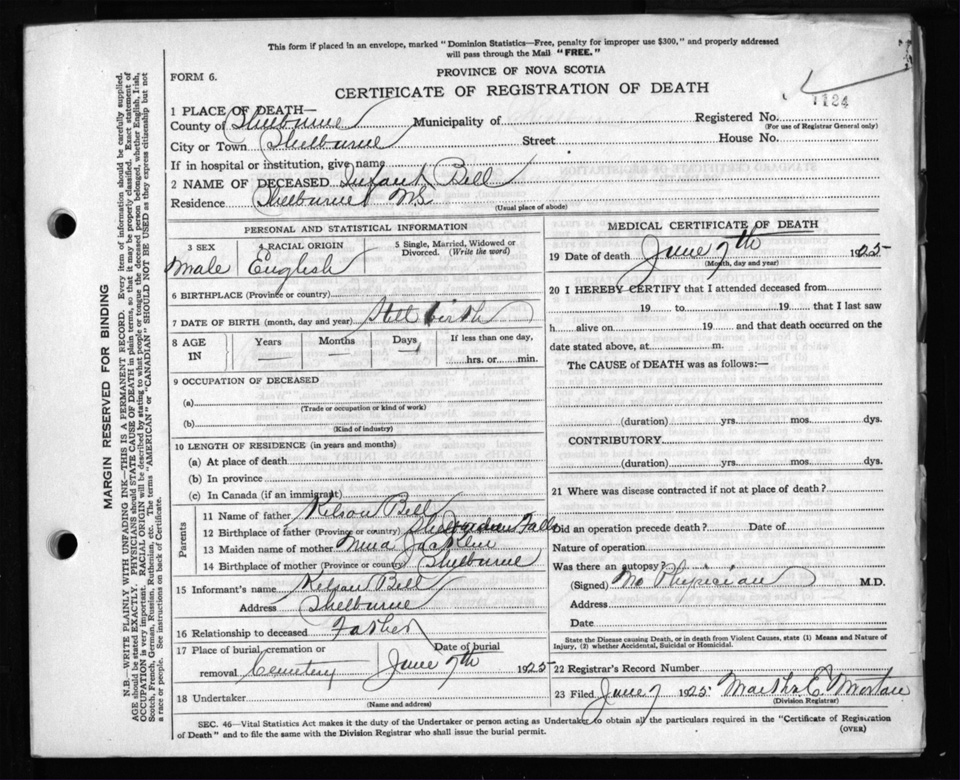 This form if placed in an envelope, marked "Dominion Statistics—Free, penalty for improper use $300," and properly addressed
will pass through the Mail "FREE."
PROVINCE OF NOVA SCOTIA
FORM 6.
CERTIFICATE OF REGISTRATION OF DEATH
1124
1 PLACE OF DEATH—
County of Shelburne Municipality of Registered No.
(For use of Registrar General only)
City or Town Shelburne Street House No.
If in hospital or institution, give name
2 NAME OF DECEASED Infant Bell
Residence Shelburne NS
(Usual place of abode)
PERSONAL AND STATISTICAL INFORMATION
3 SEX 4 RACIAL ORIGIN 5 Single, Married, Widowed or
Divorced. (Write the word)
Male English
6 BIRTHPLACE (Province or country)
7 DATE OF BIRTH (month, day and year) Still birth
8 AGE Years Months Days If less than one day,
IN — — — hrs. or min.
9 OCCUPATION OF DECEASED
(a)
(Trade or occupation or kind of work)
(b)
(Kind of industry)
10 LENGTH OF RESIDENCE (in years and months)
(a) At place of death
(b) In province
(c) In Canada (if an immigrant)
Parents
11 Name of father Nelson Bell
12 Birthplace of father (Province or country) Falls
13 Maiden name of mother Nina
14 Birthplace of mother (Province or Country) Shelburne
15 Informant's name Nelson Bell
Address Shelburne
16 Relationship to deceased Father
17 Place of burial, cremation or Date of burial
removal Cemetery June 7th 1925
18 Undertaker
(Name and address)
MEDICAL CERTIFICATE OF DEATH
19 Date of death June 7th 1925
(Month, day and year)
20 I HEREBY CERTIFY that I attended deceased from
19 to 19 that I last saw
h alive on 19 and that death occurred on the
date stated above, at m.
The CAUSE of DEATH was as follows:—
(duration) yrs. mos. dys.
CONTRIBUTORY
(duration) yrs. mos. dys.
21 Where was disease contracted if not at place of death?
Did an operation precede death? Date of
Nature of operation
Was there an autopsy?
(Signed) No Physician M.D.
Address
Date
State the Disease causing Death, or in death from Violent Causes, state (1) Means and Nature of
Injury, (2) whether Accidental, Suicidal or Homicidal.
22 Registrar's Record Number
23 Filed June 7 1925 Martha E. Morton
(Division Registrar)
SEC. 46—Vital Statistics Act makes it the duty of the Undertaker or person acting as Undertaker to obtain all the particulars required in the "Certificate of Registration
of Death" and to file the same with the Division Registrar who shall issue the burial permit.
(OVER)
MARGIN RESERVED FOR BINDING
N.B.—WRITE PLAINLY WITH UNFADING INK—THIS IS A PERMANENT RECORD. Every item of information should be carefully supplied.
AGE should be stated EXACTLY. PHYSICIANS should STATE CAUSE OF DEATH in plain terms, so that it may be properly classified. Exact statement of
OCCUPATION is very important. RACIAL ORIGIN will be described by stating to what people or tongue the deceased person belonged, whether English, Irish,
Scotch, French, German, Russian, Ruthenian, etc. The terms "AMERICAN" or "CANADIAN" SHOULD NOT BE USED as they express citizenship but not
a race or people. See instructions on back of Certificate.